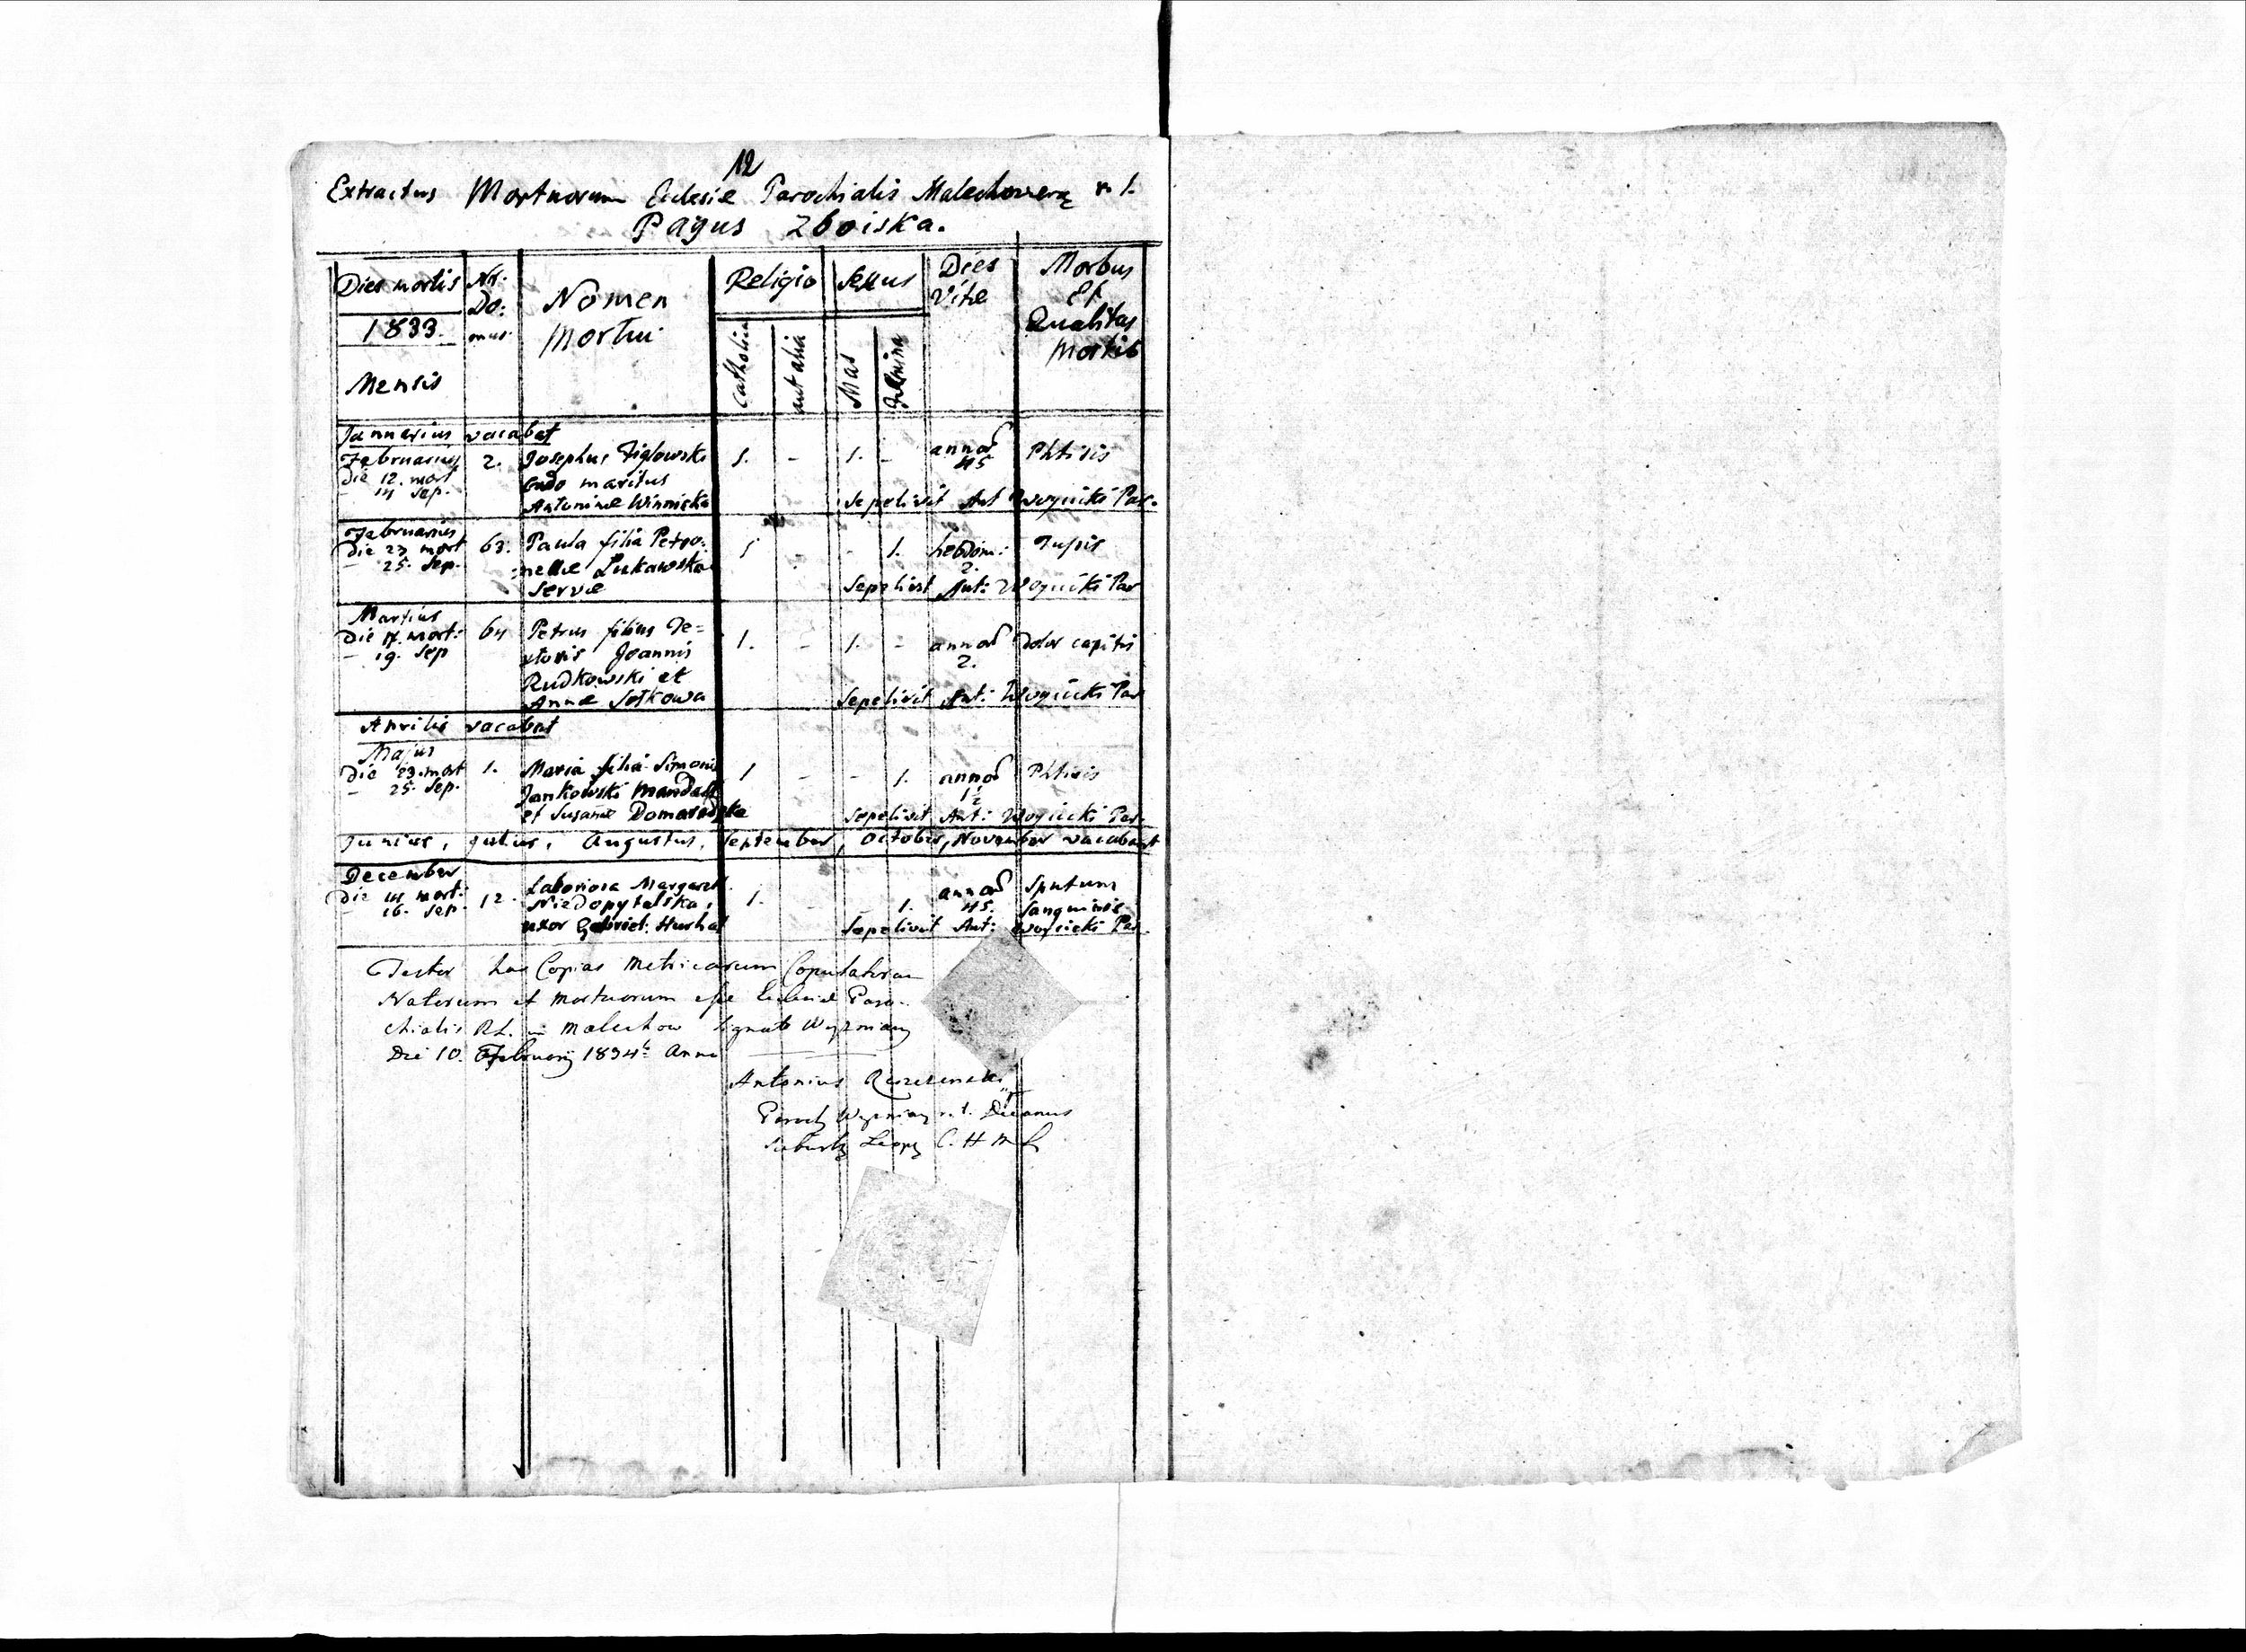 12
Extractus Mortuorum Eclesiæ Parochialis Malechoviens r. l.
Pagus Zboiska.
Dies mortis
1833.
Mensis
Nr:
Do:
mus
Nomen
Mortui
Religio
Catholica
aut alia
Sexus
Mas
Femina
Dies
Vitæ
Morbus
Et
Qualitas
Mortis
Januarius vacabat
Februarius 2. Josephus Figlowski 1. - 1. - annor 45 Phtisis
Die 12. mort maritus
14 Sep. Antoninæ Winnicka Sepelivit Ant Woycicki Par.
Februarius
Die 23 mort 63. Paula filia Petro: 1 - - 1. hebdom: 2. Tussis
– 25. Sep. nellæ Lukawska
Servæ Sepelivit Ant: Woycicki Par
Martius
Die 17. mort: 64 Petrus filius Te= 1. - 1. - annor 2. Dolor capitis
– 19. Sep xtoris Joannis
Rudkowski et
Annæ Sotkowa Sepelivit Ant: Woycicki Par
Aprilis vacabat
Majus
Die 23. mort 1. Maria filia Simonis 1 - - 1. annor 1½ Phtisis
– 25. Sep. Jankowski
et Susanæ Sepelivit Ant: Woycicki Par.
Junius, Julius, Augustus, September, October, November vacabant
December
Die 14 mort: 12. Laboriosa Margareth 1. - - 1. annor 45. Sputum
– 16. Sep. Niedopytalska, Sanguinis
uxor Gabriel: Hurhal Sepelivit Ant: Woycicki Par.
Testor has Copias Metricarum Copulatorum
Natorum et Mortuorum esse Ecclesiæ Paro-
chialis R.L. in Malechow Signato Wyzniany
Die 10. February 1834 Anno
Antonius
Paroch Wyznian r. l. Decanus
Leop C. H M L